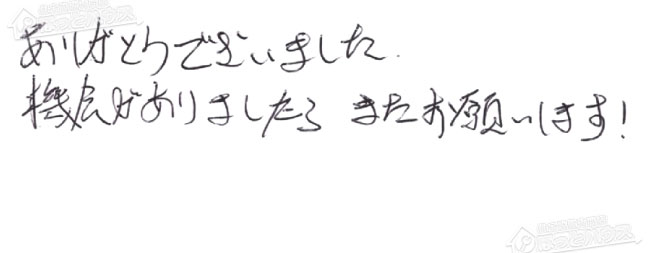 ありがとうございました.
機会がありましたら またお願いします!